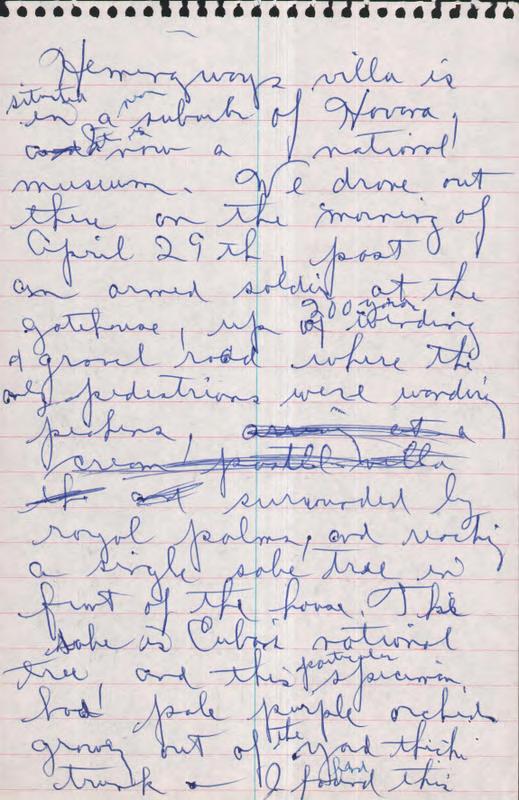 Hemingways villa is
situated
in a suburb of Havana,
It is
now a national
museum. We drove out
there on the morning of
April 29th, past
an armed soldier at the
300 yards
gatehouse, up winding
gravel road where the
only pedestrians were wandering
a
surrounded by
royal palms, and reaching
a single sabe tree in
front of the house. The
sabe is Cuba's national
tree, and this particular specimen,
had pale purple orchids
growing out of the yard thick
trunk - I found this